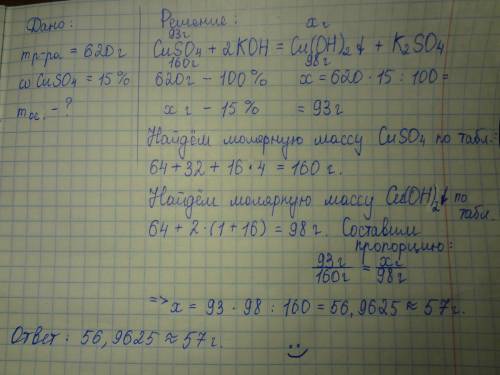 Дано:
m р-ра = 620 г
ω CuSO₄ = 15 %
m ос. - ?
Решение:
93 г x г
CuSO₄ + 2KOH = Cu(OH)₂↓ + K₂SO₄
160 г 98 г
620 г - 100 % x = 620 · 15 : 100 =
x г - 15 % = 93 г
Найдём молярную массу CuSO₄ по табл.
64 + 32 + 16 · 4 = 160 г.
Найдём молярную массу Cu(OH)₂↓ по табл.
64 + 2 · (1 + 16) = 98 г. Составим
пропорцию:
93 г / 160 г = x г / 98 г
=> x = 93 · 98 : 160 = 56,9625 ≈ 57 г.
Ответ: 56,9625 ≈ 57 г.